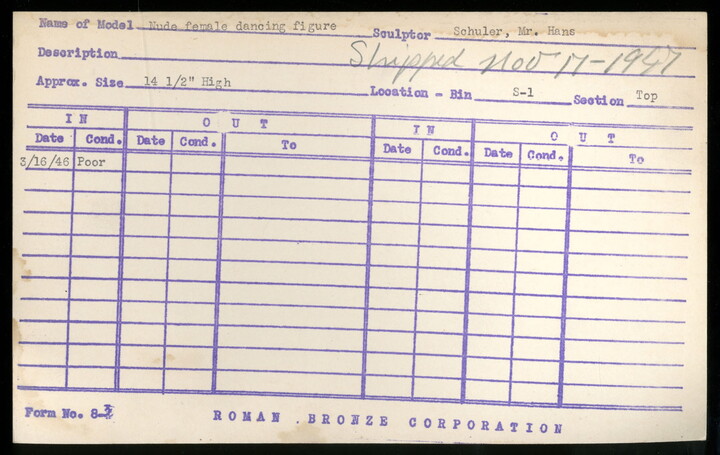 Name of Model Nude female dancing figure Sculptor Schuler, Mr. Hans
Description Shipped Nov 17-1947
Approx. Size 14 1/2" High Location - Bin S-1 Section Top
IN OUT IN OUT
Date Cond. Date Cond. To Date Cond. Date Cond. To
3/16/46 Poor
Form No. 8-3 ROMAN BRONZE CORPORATION